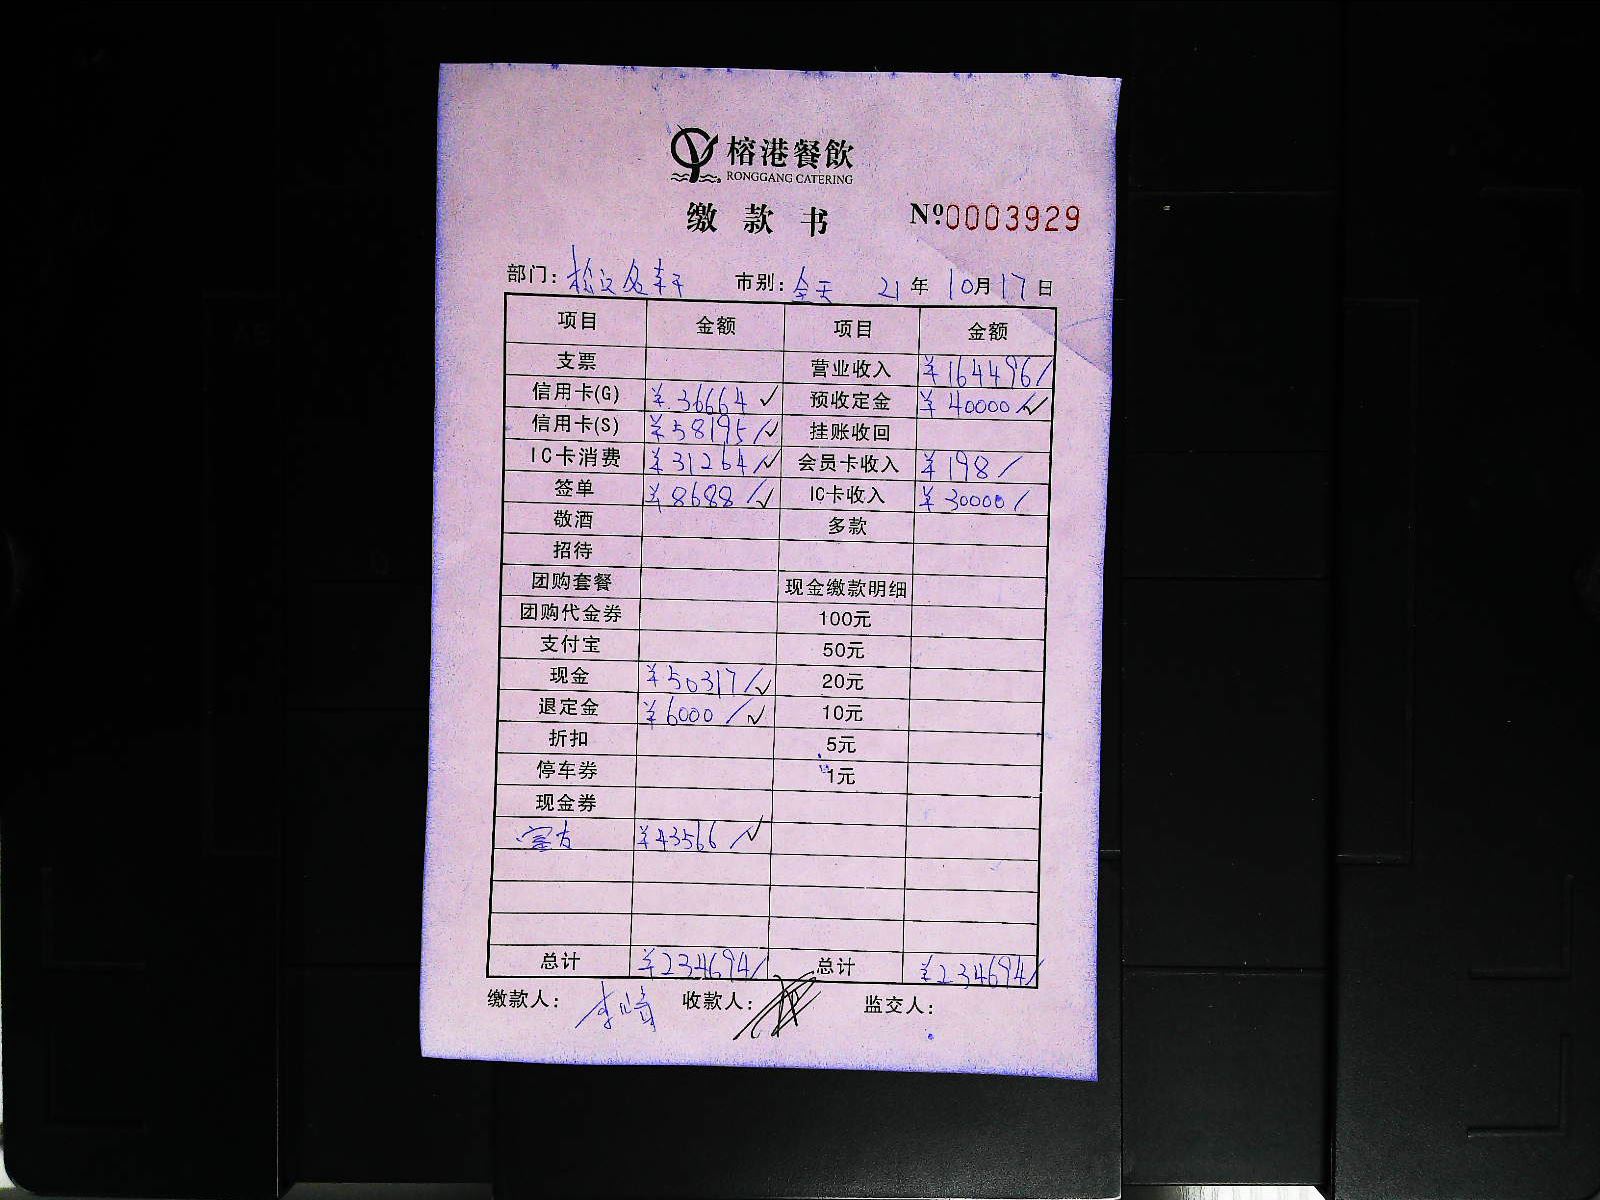 榕港餐飲
RONGGANG CATERING
缴款书 Nº0003929
部门: 市别: 全天 21年10月17日
项目 金额 项目 金额
支票 营业收入 ¥164496/
信用卡(G) ¥36664✓ 预收定金 ¥40000/✓
信用卡(S) ¥58195/✓ 挂账收回
IC卡消费 ¥31264/✓ 会员卡收入 ¥198/
签单 ¥8688/✓ IC卡收入 ¥30000/
敬酒 多款
招待
团购套餐 现金缴款明细
团购代金券 100元
支付宝 50元
现金 ¥50317/✓ 20元
退定金 ¥6000/✓ 10元
折扣 5元
停车券 1元
现金券
¥43566/✓
总计 ¥234694/ 总计 ¥234694/
缴款人: 收款人: 监交人: